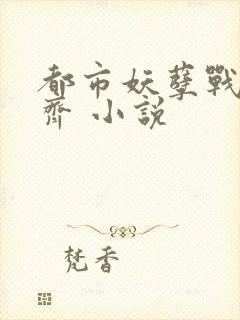 都市妖孽戰
齊 小說
梵香